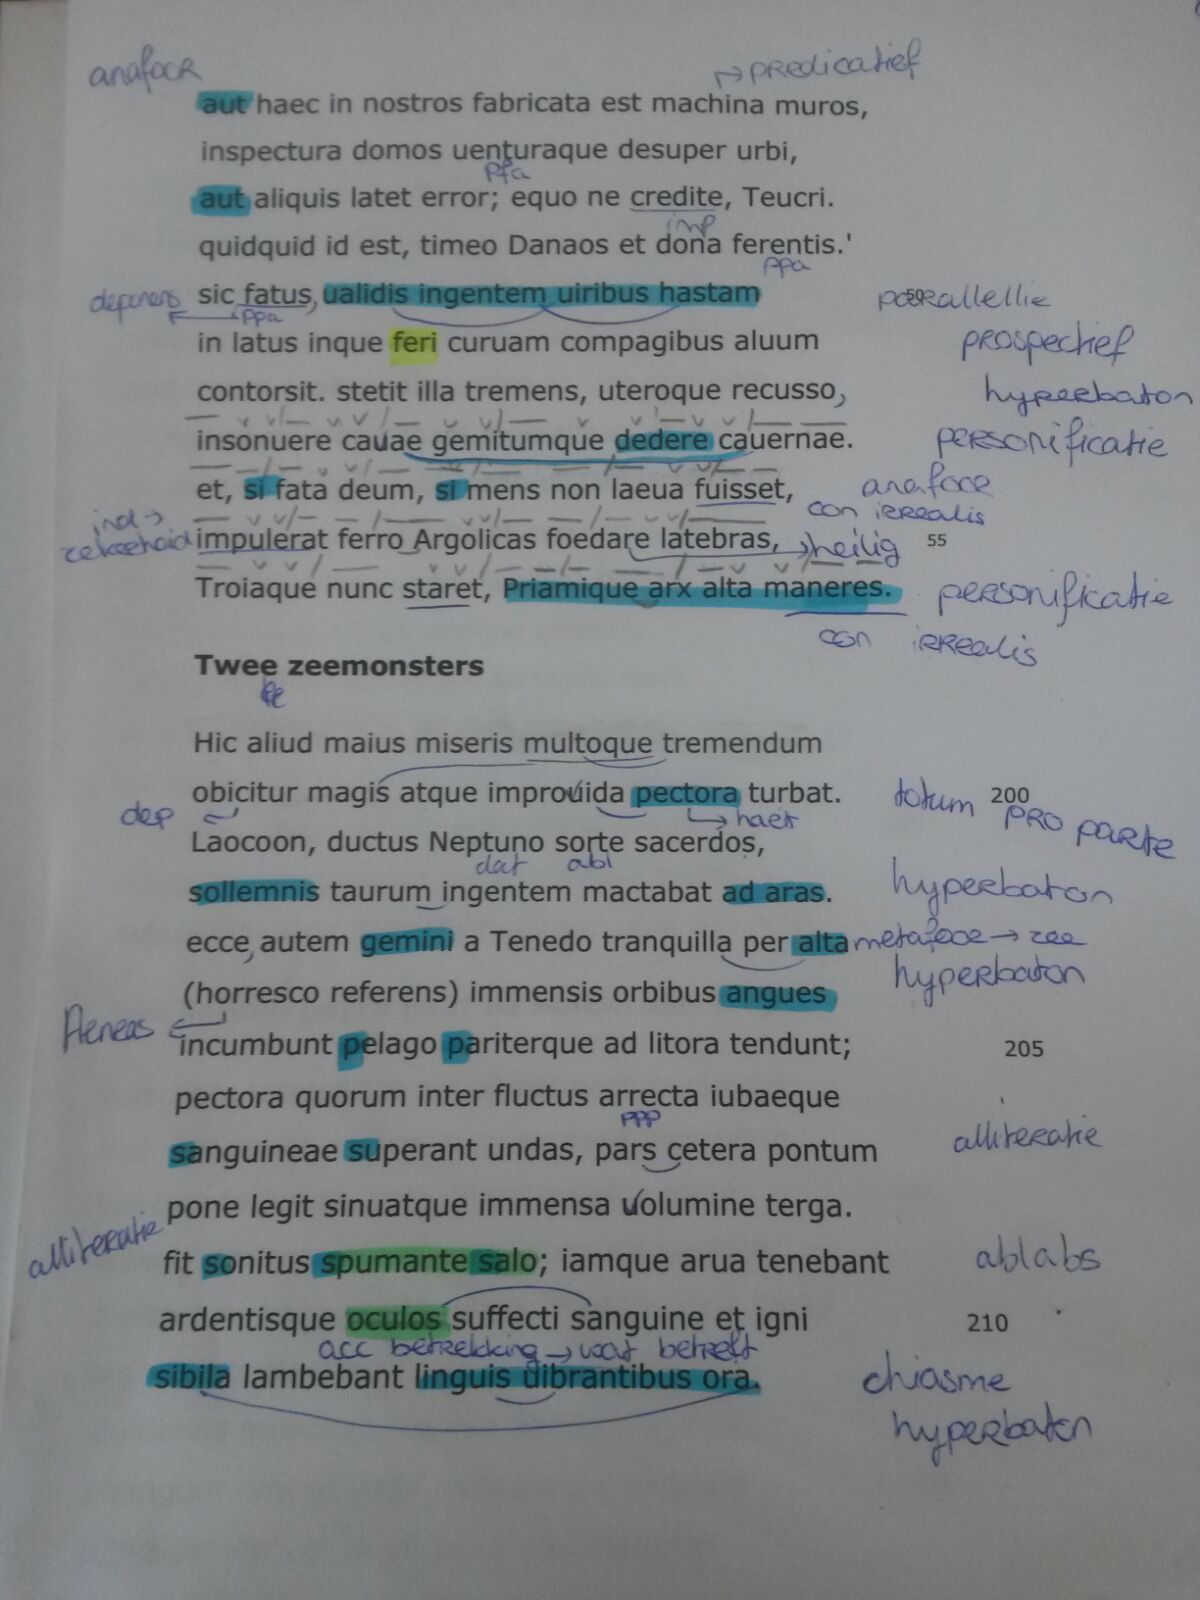 anafoor
→ predicatief
aut haec in nostros fabricata est machina muros,
inspectura domos uenturaque desuper urbi,
pfa
aut aliquis latet error; equo ne credite, Teucri.
imp
quidquid id est, timeo Danaos et dona ferentis.'
ppa
deponens sic fatus, ualidis ingentem uiribus hastam 50 parallellie
ppa
in latus inque feri curuam compagibus aluum prospectief
contorsit. stetit illa tremens, uteroque recusso, hyperbaton
insonuere cauae gemitumque dedere cauernae. personificatie
et, si fata deum, si mens non laeua fuisset, anafoor
con irrealis
ind →
zekerheid impulerat ferro Argolicas foedare latebras, → heilig 55
Troiaque nunc staret, Priamique arx alta maneres. personificatie
con irrealis
Twee zeemonsters
Hic aliud maius miseris multoque tremendum
obicitur magis atque improuida pectora turbat. totum pro parte 200
dep → hart
Laocoon, ductus Neptuno sorte sacerdos,
dat abl
sollemnis taurum ingentem mactabat ad aras. hyperbaton
ecce, autem gemini a Tenedo tranquilla per alta metafoor → zee
hyperbaton
(horresco referens) immensis orbibus angues
Aeneas
incumbunt pelago pariterque ad litora tendunt; 205
pectora quorum inter fluctus arrecta iubaeque
ppp
sanguineae superant undas, pars cetera pontum alliteratie
pone legit sinuatque immensa uolumine terga.
alliteratie
fit sonitus spumante salo; iamque arua tenebant abl abs
ardentisque oculos suffecti sanguine et igni 210
acc betrekking → wat betreft
sibila lambebant linguis dibrantibus ora. chiasme
hyperbaton